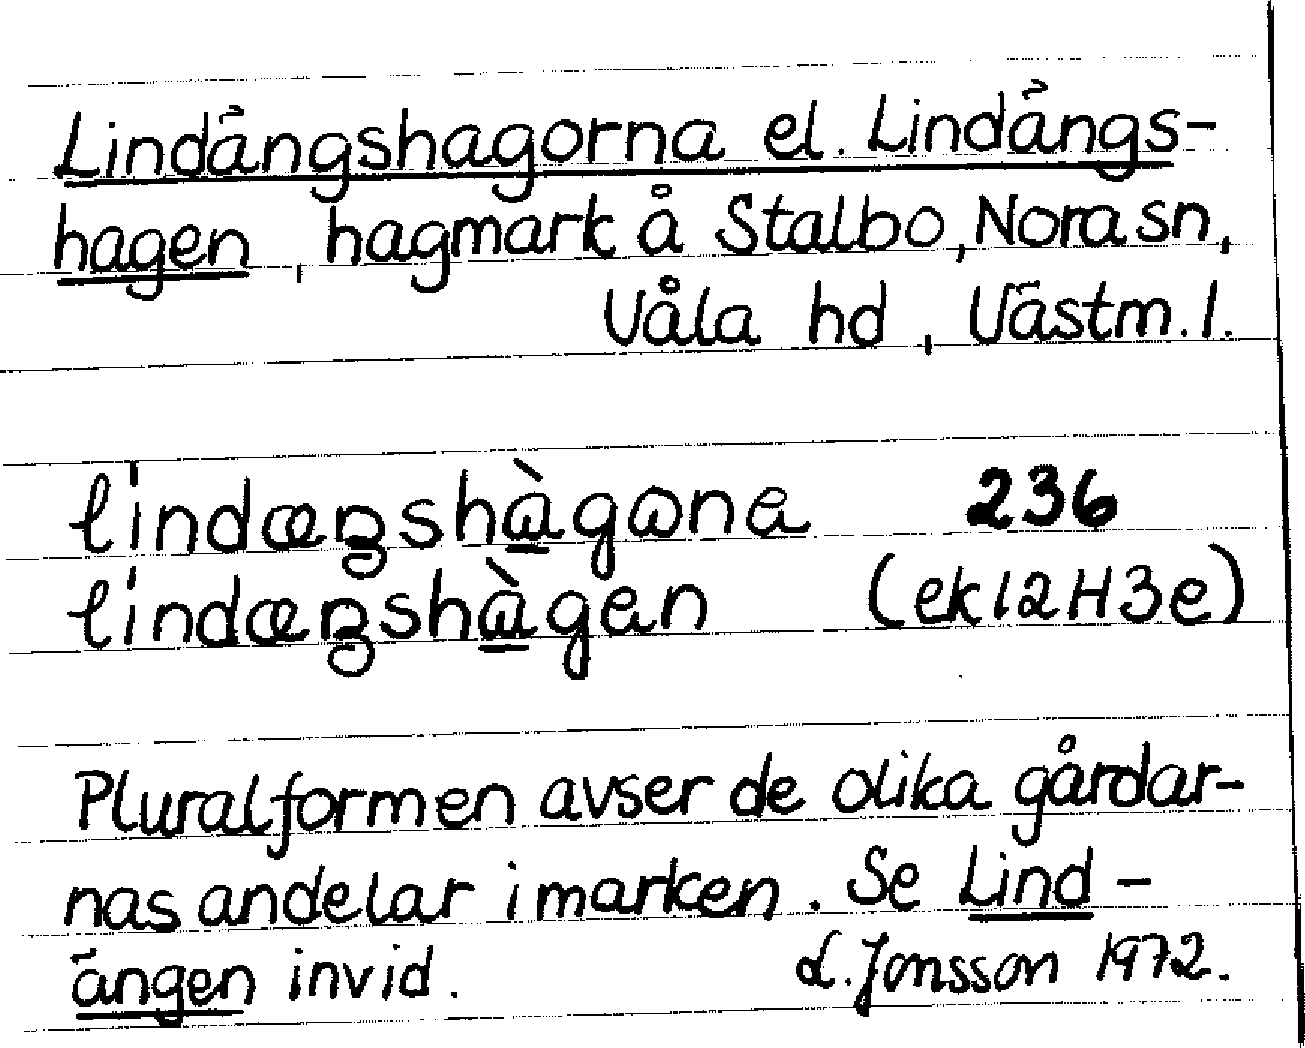 Lindängshagorna el. Lindängs-
hagen, hagmark å Stalbo, Nora sn,
Våla hd, Västm. l.
lindæŋshàgɷna 236
lindæŋshàgen (ek 12H3e)
Pluralformen avser de olika gårdar-
nas andelar i marken. Se Lind-
ängen invid. L. Jonsson 1972.